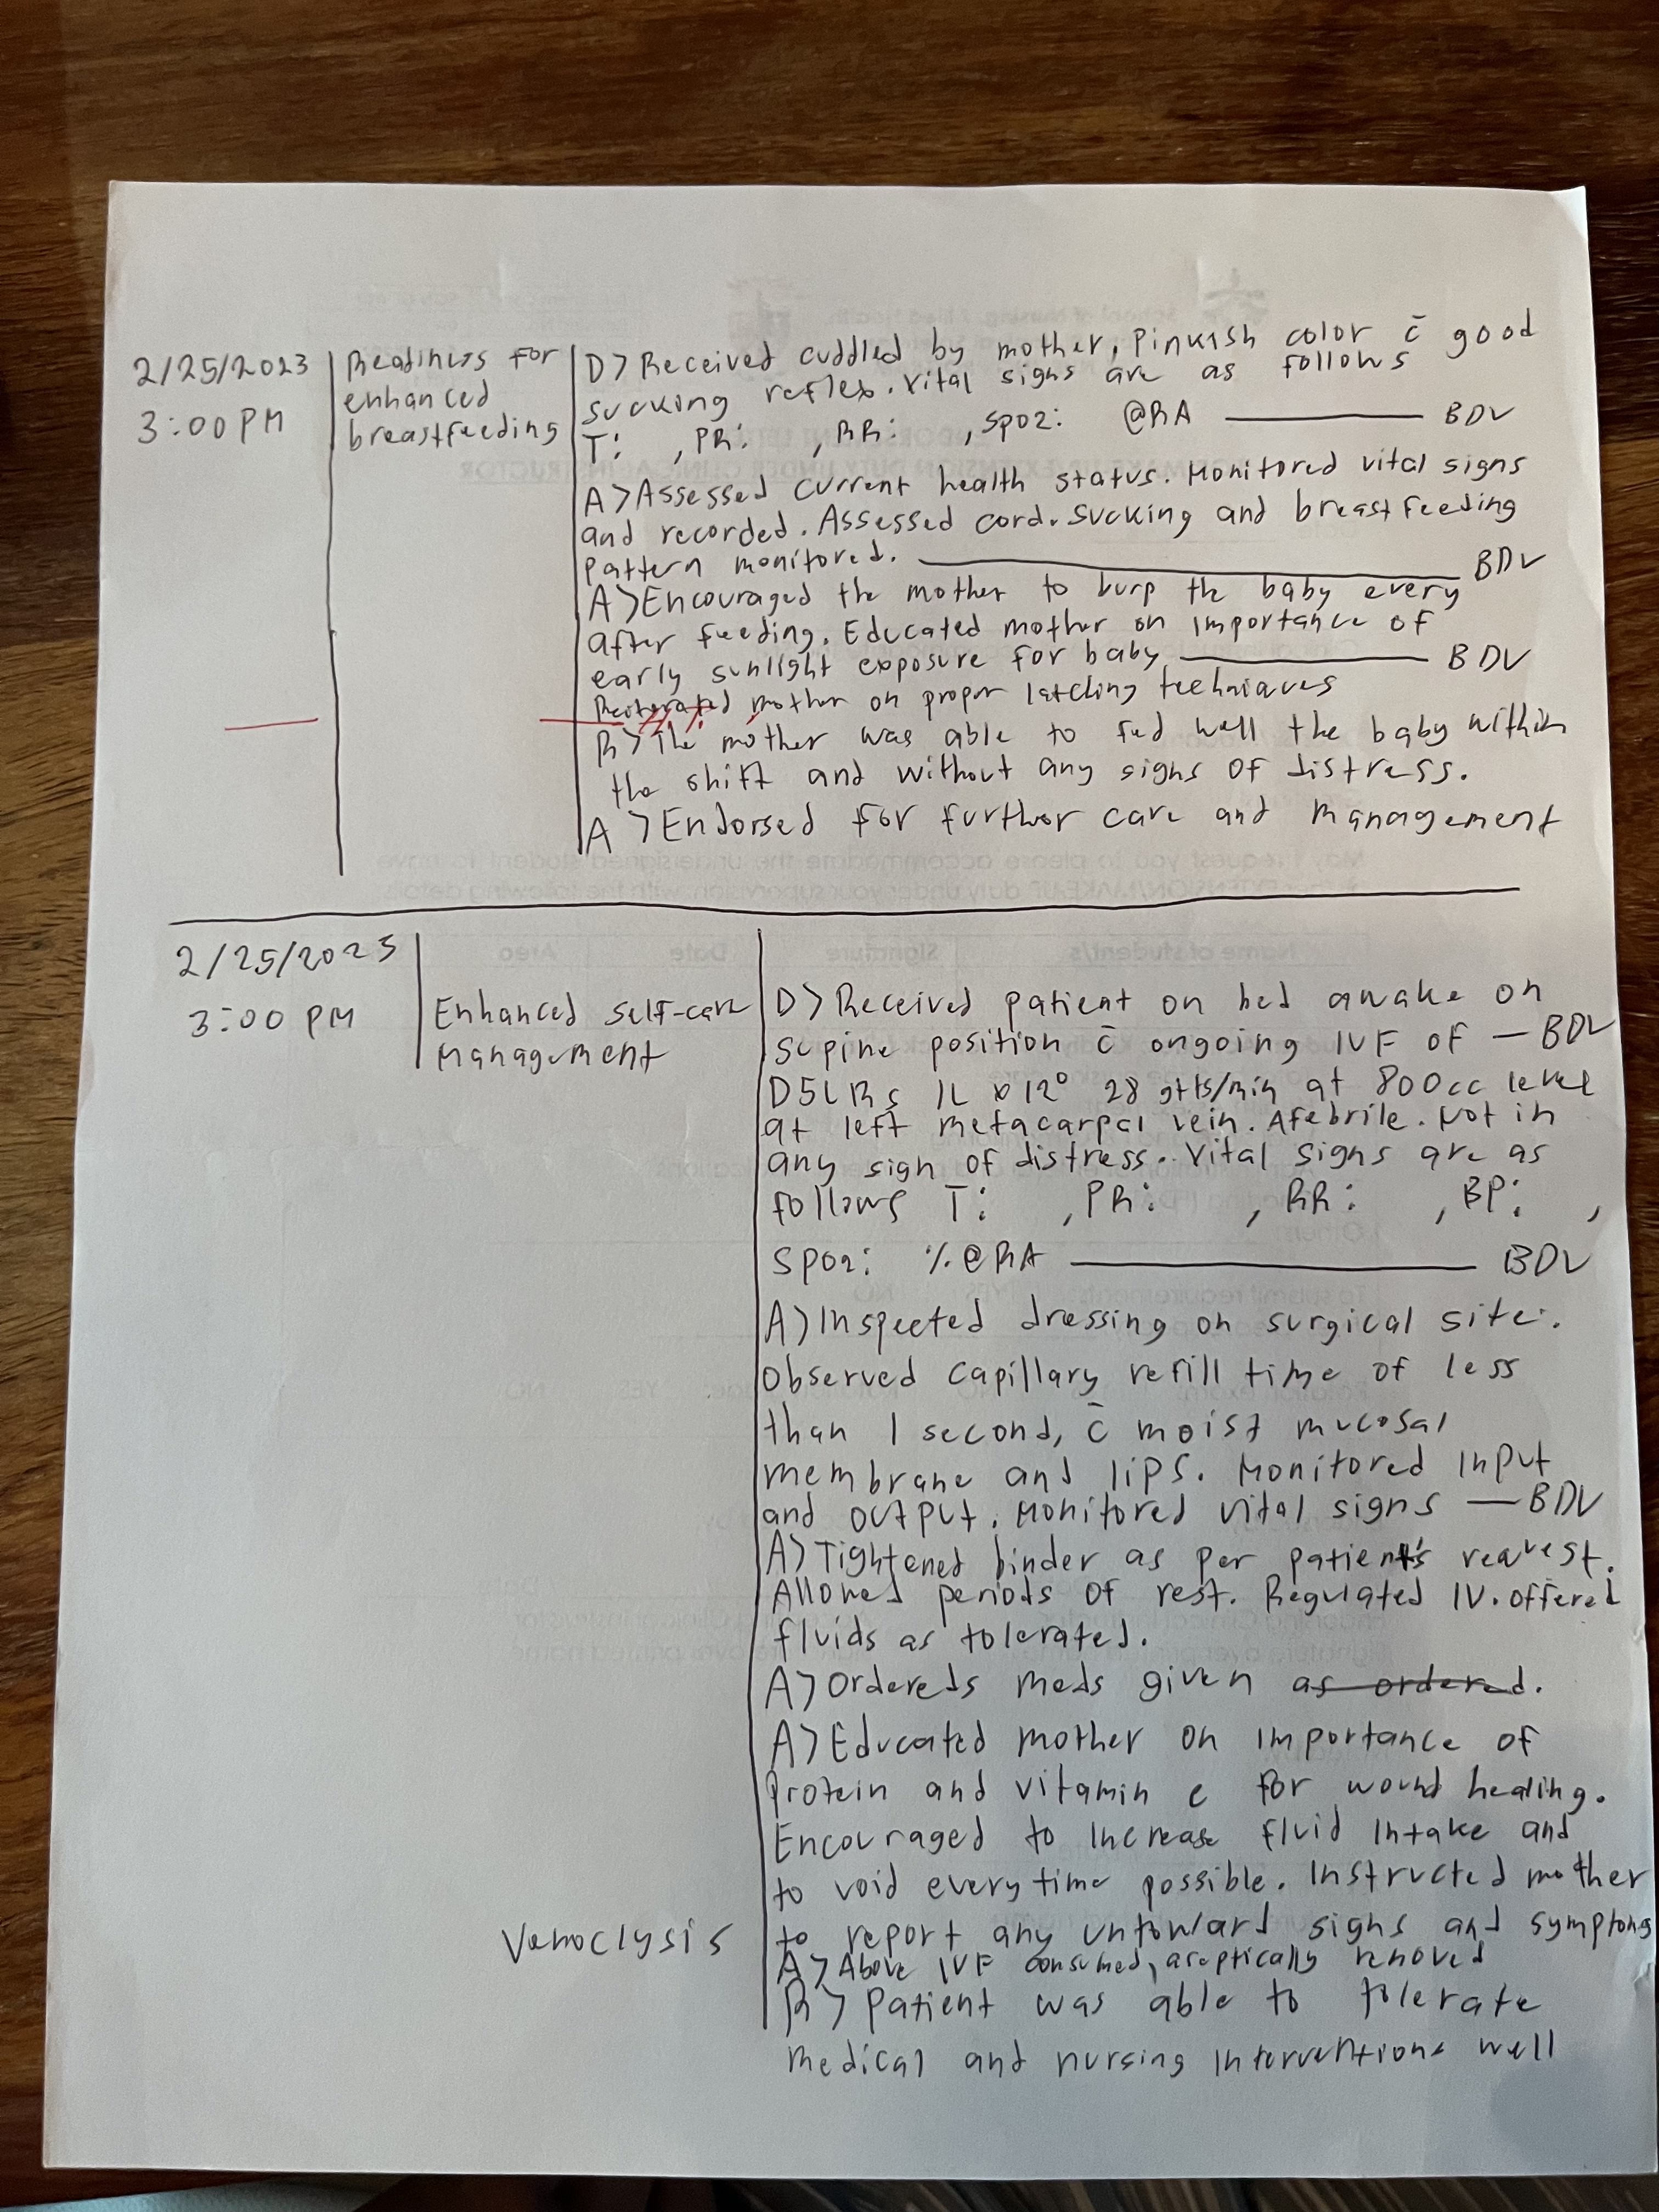 2/25/2023
3:00 PM
Readiness for
enhanced
breastfeeding
D> Received cuddled by mother, Pinkish color c̄ good
sucking reflex. Vital signs are as follows
T: , PR: , RR: , SPO2: @RA BDV
A> Assessed current health status. Monitored vital signs
and recorded. Assessed cord. Sucking and breastfeeding
pattern monitored. BDV
A> Encouraged the mother to burp the baby every
after feeding. Educated mother on importance of
early sunlight exposure for baby BDV
Reiterated mother on proper latching techniques
R> The mother was able to fed well the baby within
the shift and without any signs of distress.
A> Endorsed for further care and management
2/25/2023
3:00 PM
Enhanced self-care
Management
D> Received patient on bed awake on
supine position c̄ ongoing IVF of — BDV
D5LRs 1L x 12° 28 gtts/min at 800cc level
at left metacarpal vein. Afebrile. Not in
any sign of distress. Vital signs are as
follows T: , PR: , RR: , BP: ,
SPO2: %@RA BDV
A> Inspected dressing on surgical site.
Observed capillary refill time of less
than 1 second, c̄ moist mucosal
membrane and lips. Monitored input
and output. Monitored vital signs — BDV
A> Tightened binder as per patient's request.
Allowed periods of rest. Regulated IV. Offered
fluids as tolerated.
A> Ordereds meds given as ordered.
A> Educated mother on importance of
Protein and vitamin c for wound healing.
Encouraged to increase fluid intake and
to void everytime possible. Instructed mother
to report any untoward signs and symptoms
Venoclysis
A> Above IVF consumed, aseptically removed
R> Patient was able to tolerate
medical and nursing interventions well